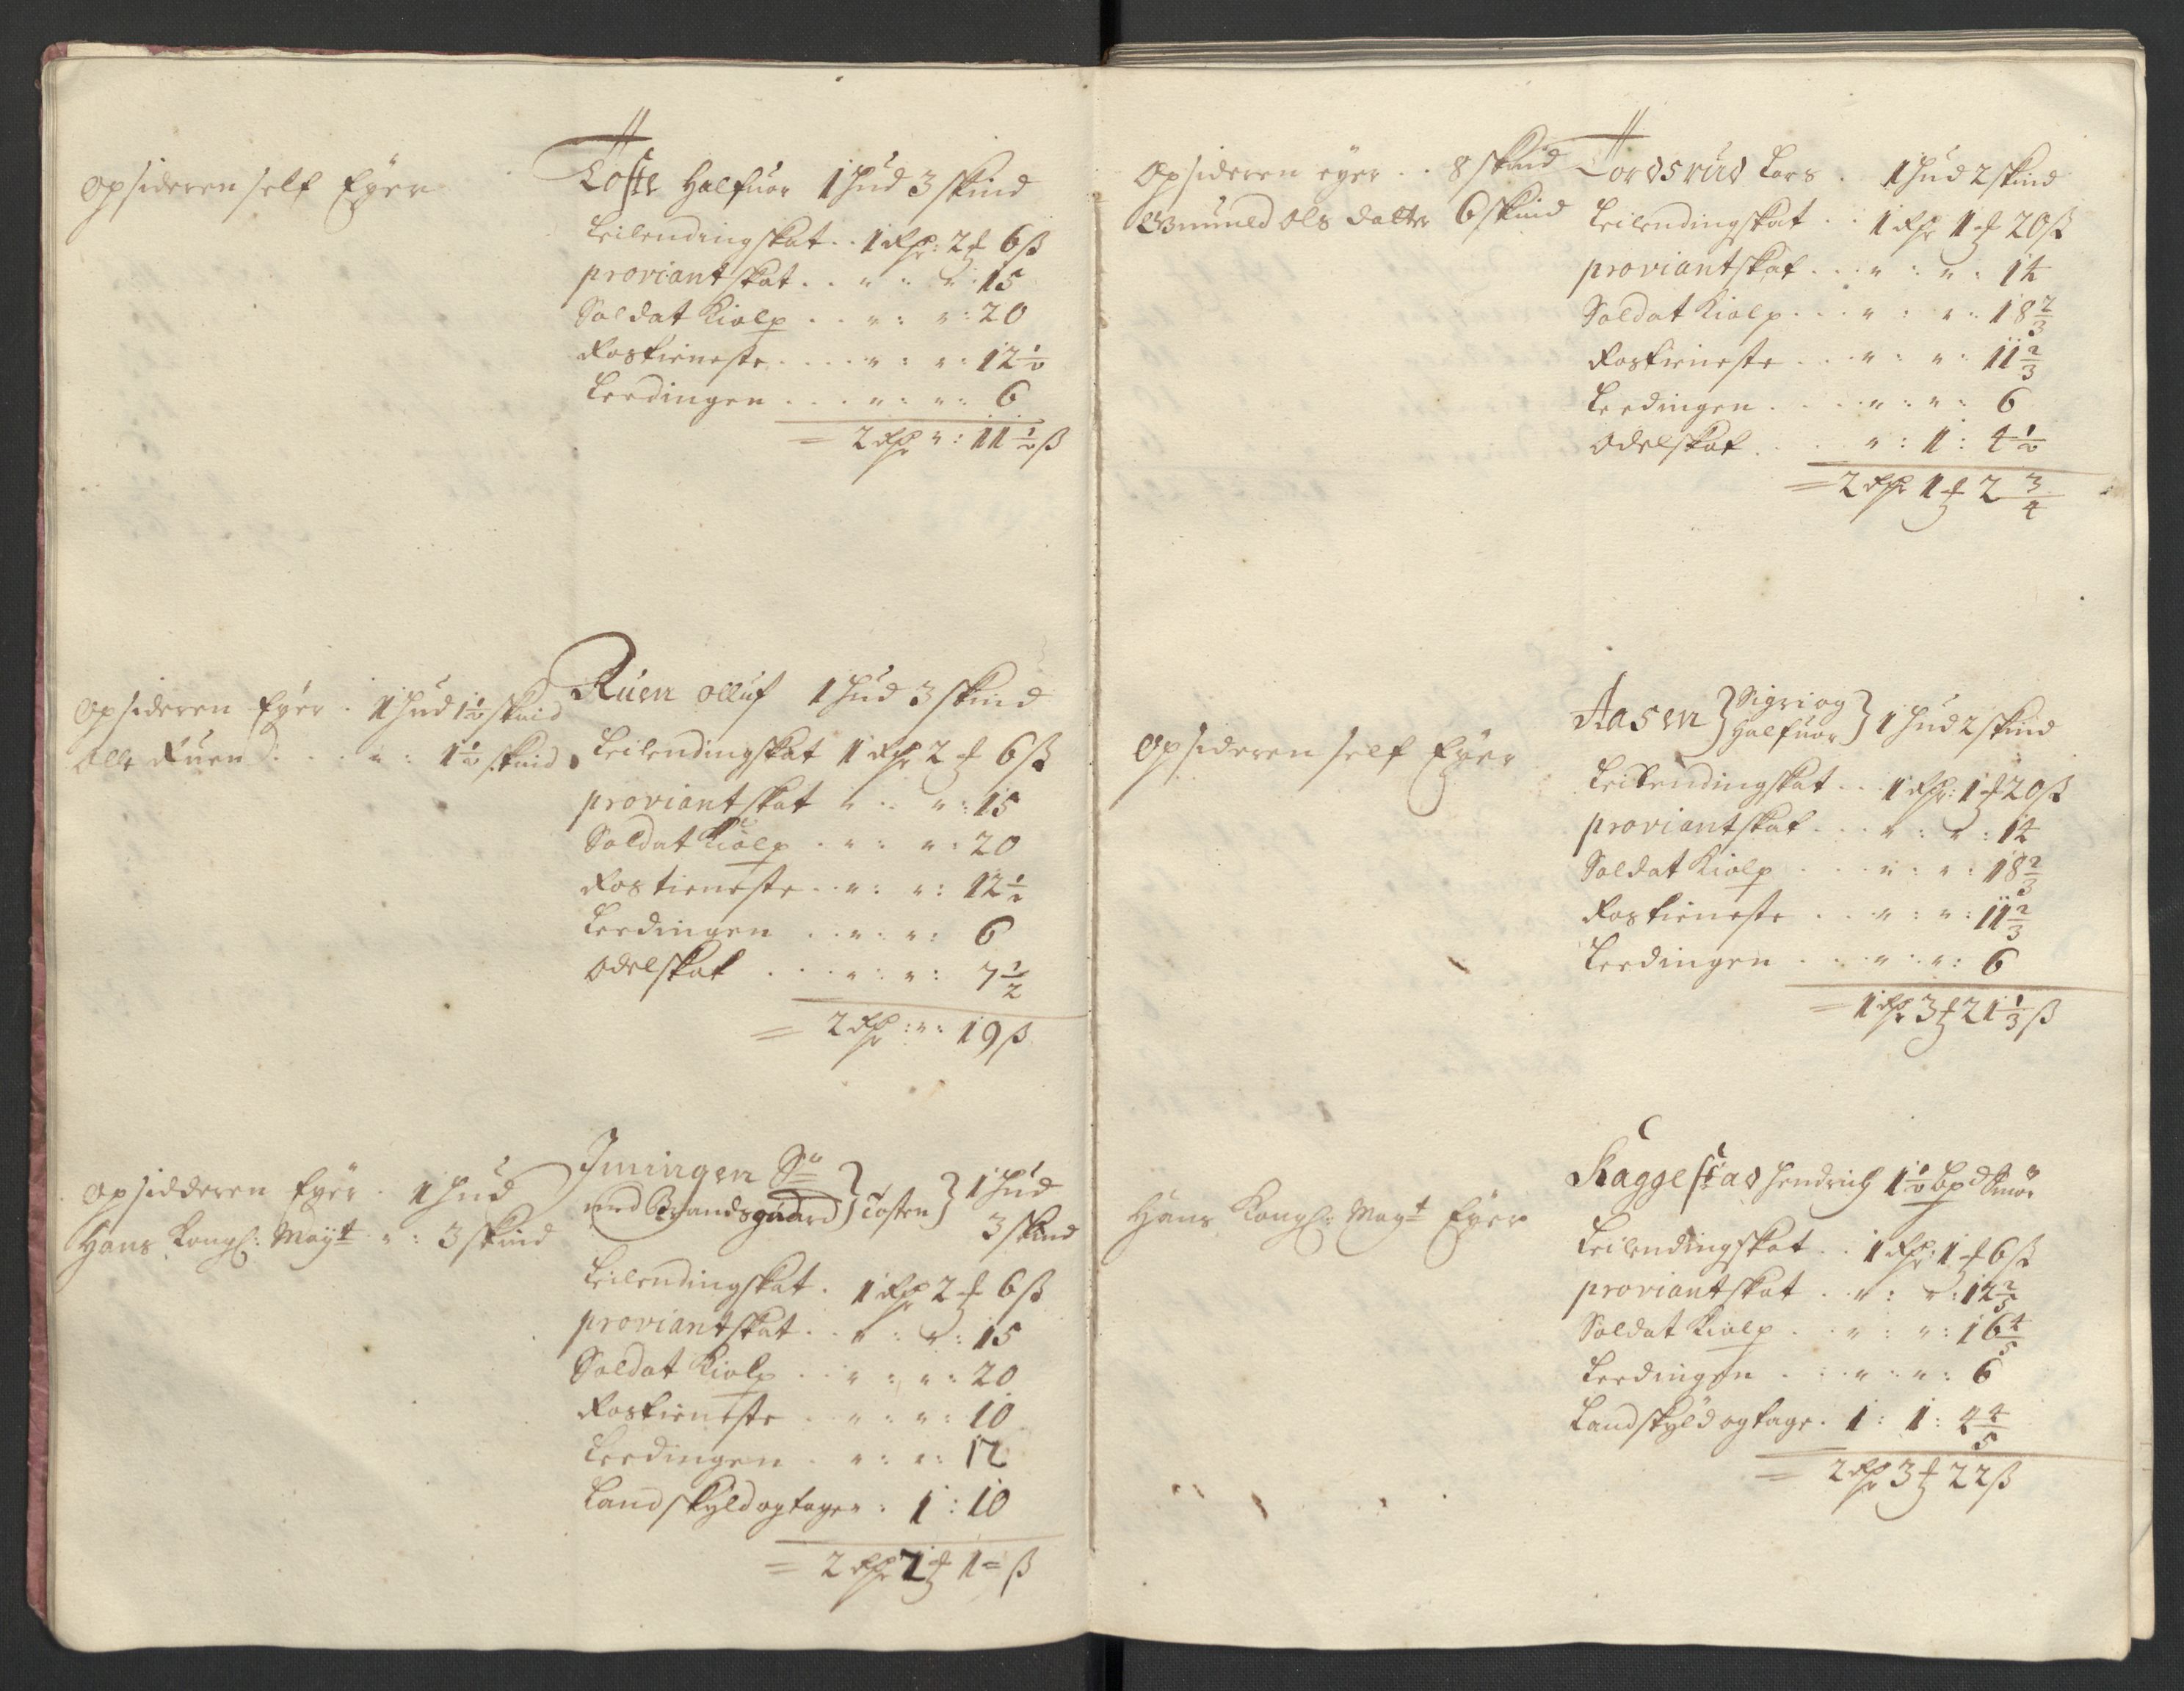 Opsideren self Eyer
Toste Halfuor 1 Hud 3 skind
Leilendingskat . . 1 Rdr: 2 ₰ 6 ß
proviantskat . . " : " : 15
Soldat Kiolp . . " : " : 20
Rostieneste . . . . " : " : 12 1/2
Leedingen . . . " : " : 6
= 2 Rdr " : 11 1/2 ß
Opsideren Eyer . 1 Hud 1 1/2 skind
Olle Ruen . . . " : 1 1/2 skind
Ruen Olluf 1 Hud 3 skind
Leilendingskat 1 Rdr 2 ₰ 6 ß
proviantskat " : " : 15
Soldat Kiolp . " : " : 20
Rostieneste . . " : " : 12 1/2
Leedingen . . " : " : 6
Odelskat . . . " : " : 7 1/2
= 2 Rdr : " : 19 ß
Opsidderen Eyer . 1 Hud
Hans Kongl: Mayt " : 3 skind
Imingen
med Brandsgaard } Tosten } 1 Hud
3 skind
Leilendingskat . 1 Rdr 2 ₰ 6 ß
proviantskat . . " : " : 15
Soldat Kiolp . . " : " : 20
Rostieneste . " : " : 10
Leedingen . " : " : 12
Landskyld og tager : 1 : 10
= 2 Rdr 2 ₰ 1 = ß
Opsideren eyer . . 8 skind
Gunnild Ols datter 6 skind
Tordsrud Lars . 1 Hud 2 skind
Leilendingskat . . 1 Rdr 1 ₰ 20 ß
proviantskat . . . " : " : 14
Soldat Kiolp . . . " : " : 18 2/3
Rostieneste . . . " : " : 11 2/3
Leedingen . . . . " : " : 6
Odelskat . . . " : 1 : 4 1/2
= 2 Rdr 1 ₰ 2 3/4
Opsideren self Eyer
Aasen } Sigri og
Halfuor } 1 Hud 2 skind
Leilendingskat . . 1 Rdr: 1 ₰ 20 ß
proviantskat . . . " : " : 14
Soldat Kiolp . . . " : " : 18 2/3
Rostieneste . . . " : " : 11 2/3
Leedingen . . . " : " : 6
= 1 Rdr 3 ₰ 21 1/3 ß
Hans Kongl: Mayt Eyer
Kaggestad Hendrich 1 1/2 Lpd Smør
Leilendingskat . . 1 Rdr: 1 ₰ 6 ß
proviantskat . . " : " : 12 2/5
Soldat Kiolp . . " : " : 16 4/5
Leedingen . . . " : " : 6
Landskyld og tage . 1 : 1 : 4 4/5
= 2 Rdr 3 ₰ 22 ß